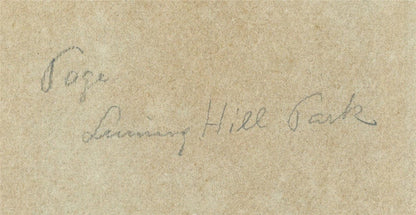 Page
Luning Hill Park